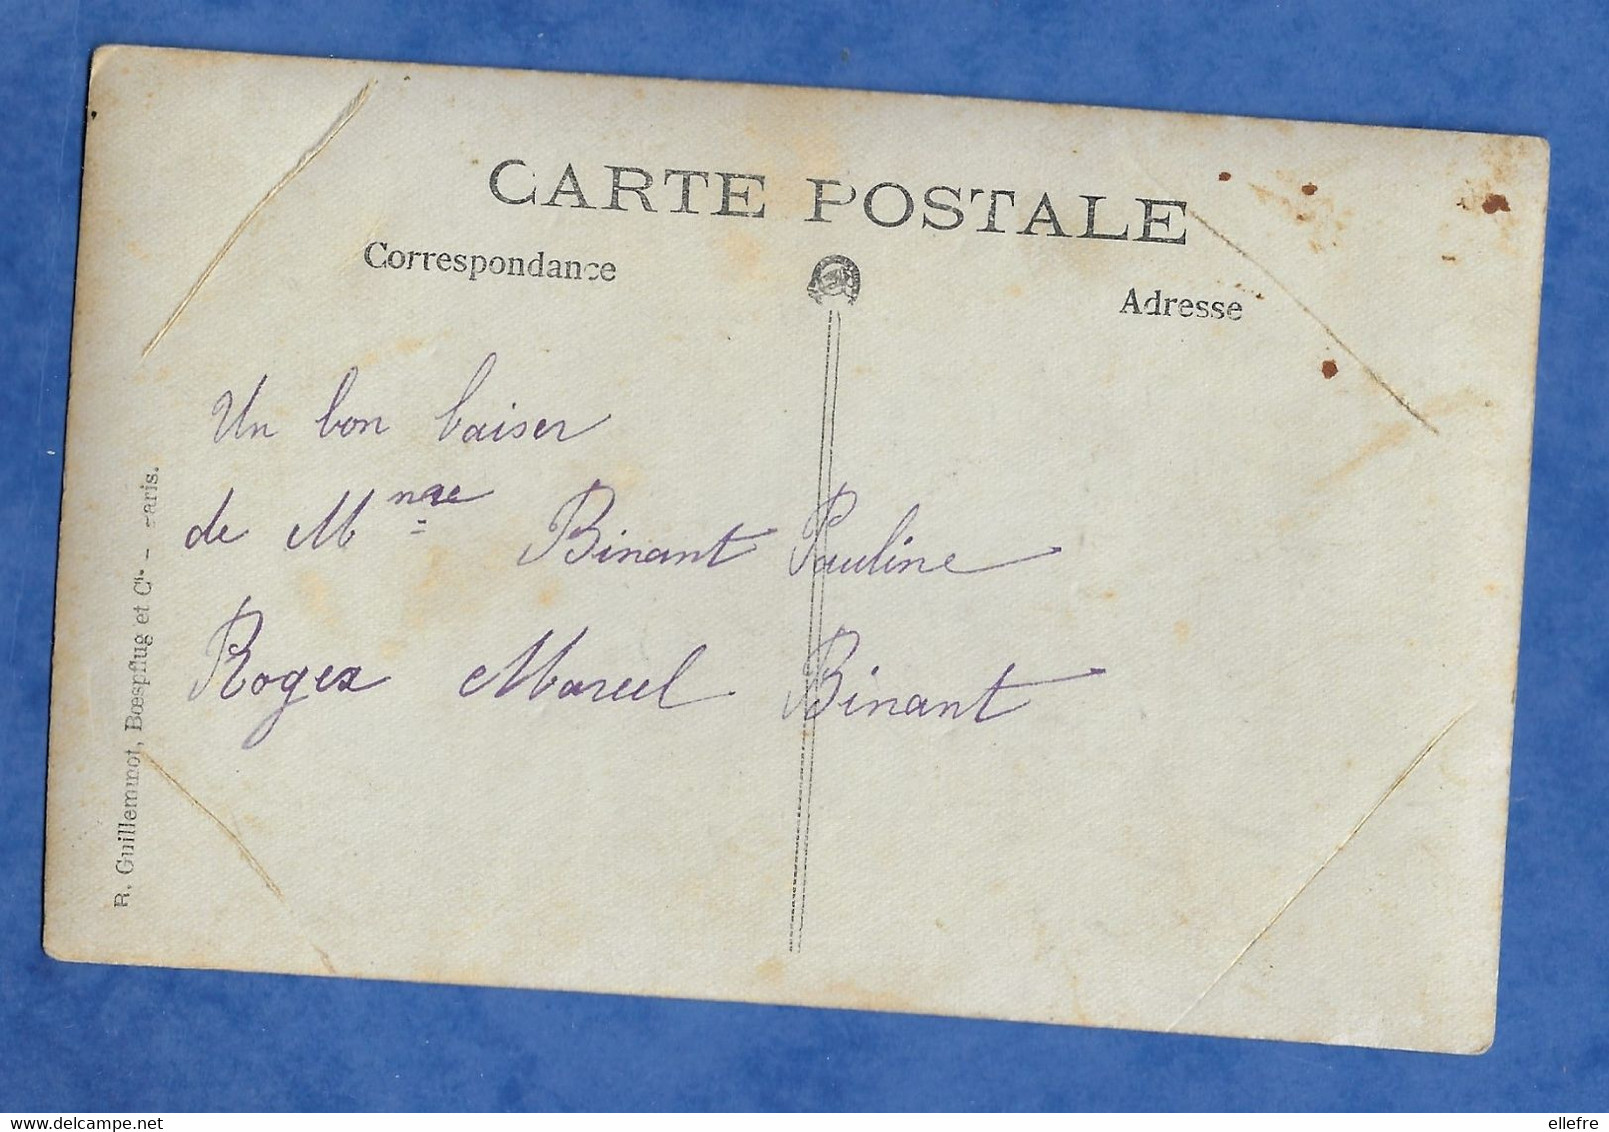 CARTE POSTALE
Correspondance
Adresse
Un bon baiser
de Mme Binant Pauline
Roger Marcel Binant
R. Guillemnot, Bœspflug et Cie - Paris.
delcampe.net
ellefre